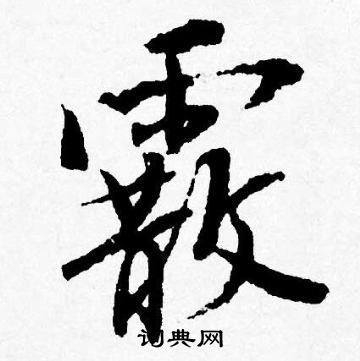 霰
词典网